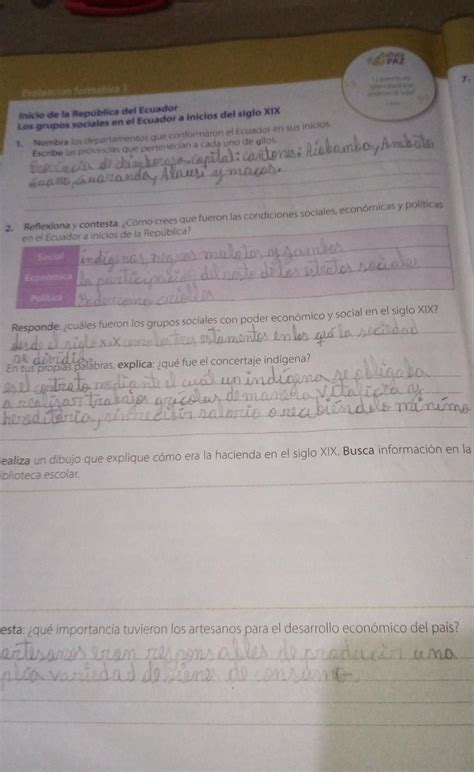 Cultura
PAZ
7.
Evaluación formativa 3
Inicio de la República del Ecuador
Los grupos sociales en el Ecuador a inicios del siglo XIX
1. Nombra los departamentos que conformaron el Ecuador en sus inicios.
Escribe las provincias que pertenecían a cada uno de ellos.
Provincia de chimborazo, capital: cantones: Riobamba, Ambato
Guano, Guaranda, Alausí. y macas.
2. Reflexiona y contesta: ¿Cómo crees que fueron las condiciones sociales, económicas y políticas
en el Ecuador a inicios de la República?
Social indígenas negros mulatos y zambos
Económica la participación del resto de los estratos sociales
Política Poder como criollos
Responde: ¿cuáles fueron los grupos sociales con poder económico y social en el siglo XIX?
desde el siglo XIX como los tres estamentos en los que la sociedad
se dividió
En tus propias palabras, explica: ¿qué fue el concertaje indígena?
es el contrato mediante el cual un indígena se obligaba
a realizar trabajos agrícolas de manera vitalicia y
hereditaria, sin recibir salario o recibiendolo mínimo
ealiza un dibujo que explique cómo era la hacienda en el siglo XIX. Busca información en la
iblioteca escolar.
esta: ¿qué importancia tuvieron los artesanos para el desarrollo económico del país?
artesanos eran responsables de producir una
plia variedad de biene de consumo.